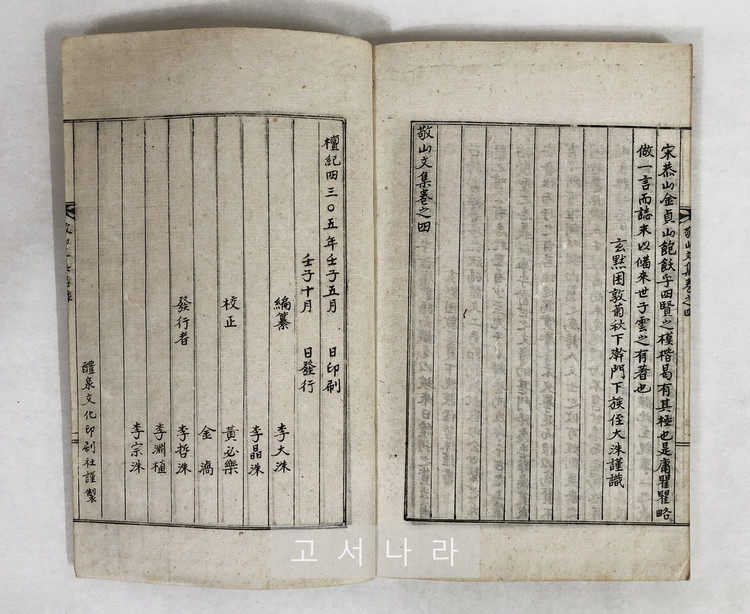 宋恭山金貞山飽飫乎四賢之模楷曷有其極也是庸瞿瞿略
做一言而誌末以備來世子雲之有著也
玄黙困敦菊秋下澣門下族侄大洙謹識
敬山文集卷之四
敬山文集卷之四
檀紀四三〇五年壬子五月 日印刷
壬子十月 日發行
編纂 李大洙
李晶洙
校正 黃必樂
金潏
發行者 李哲洙
李淵植
李宗洙
醴泉文化印刷社謹製
고서나라